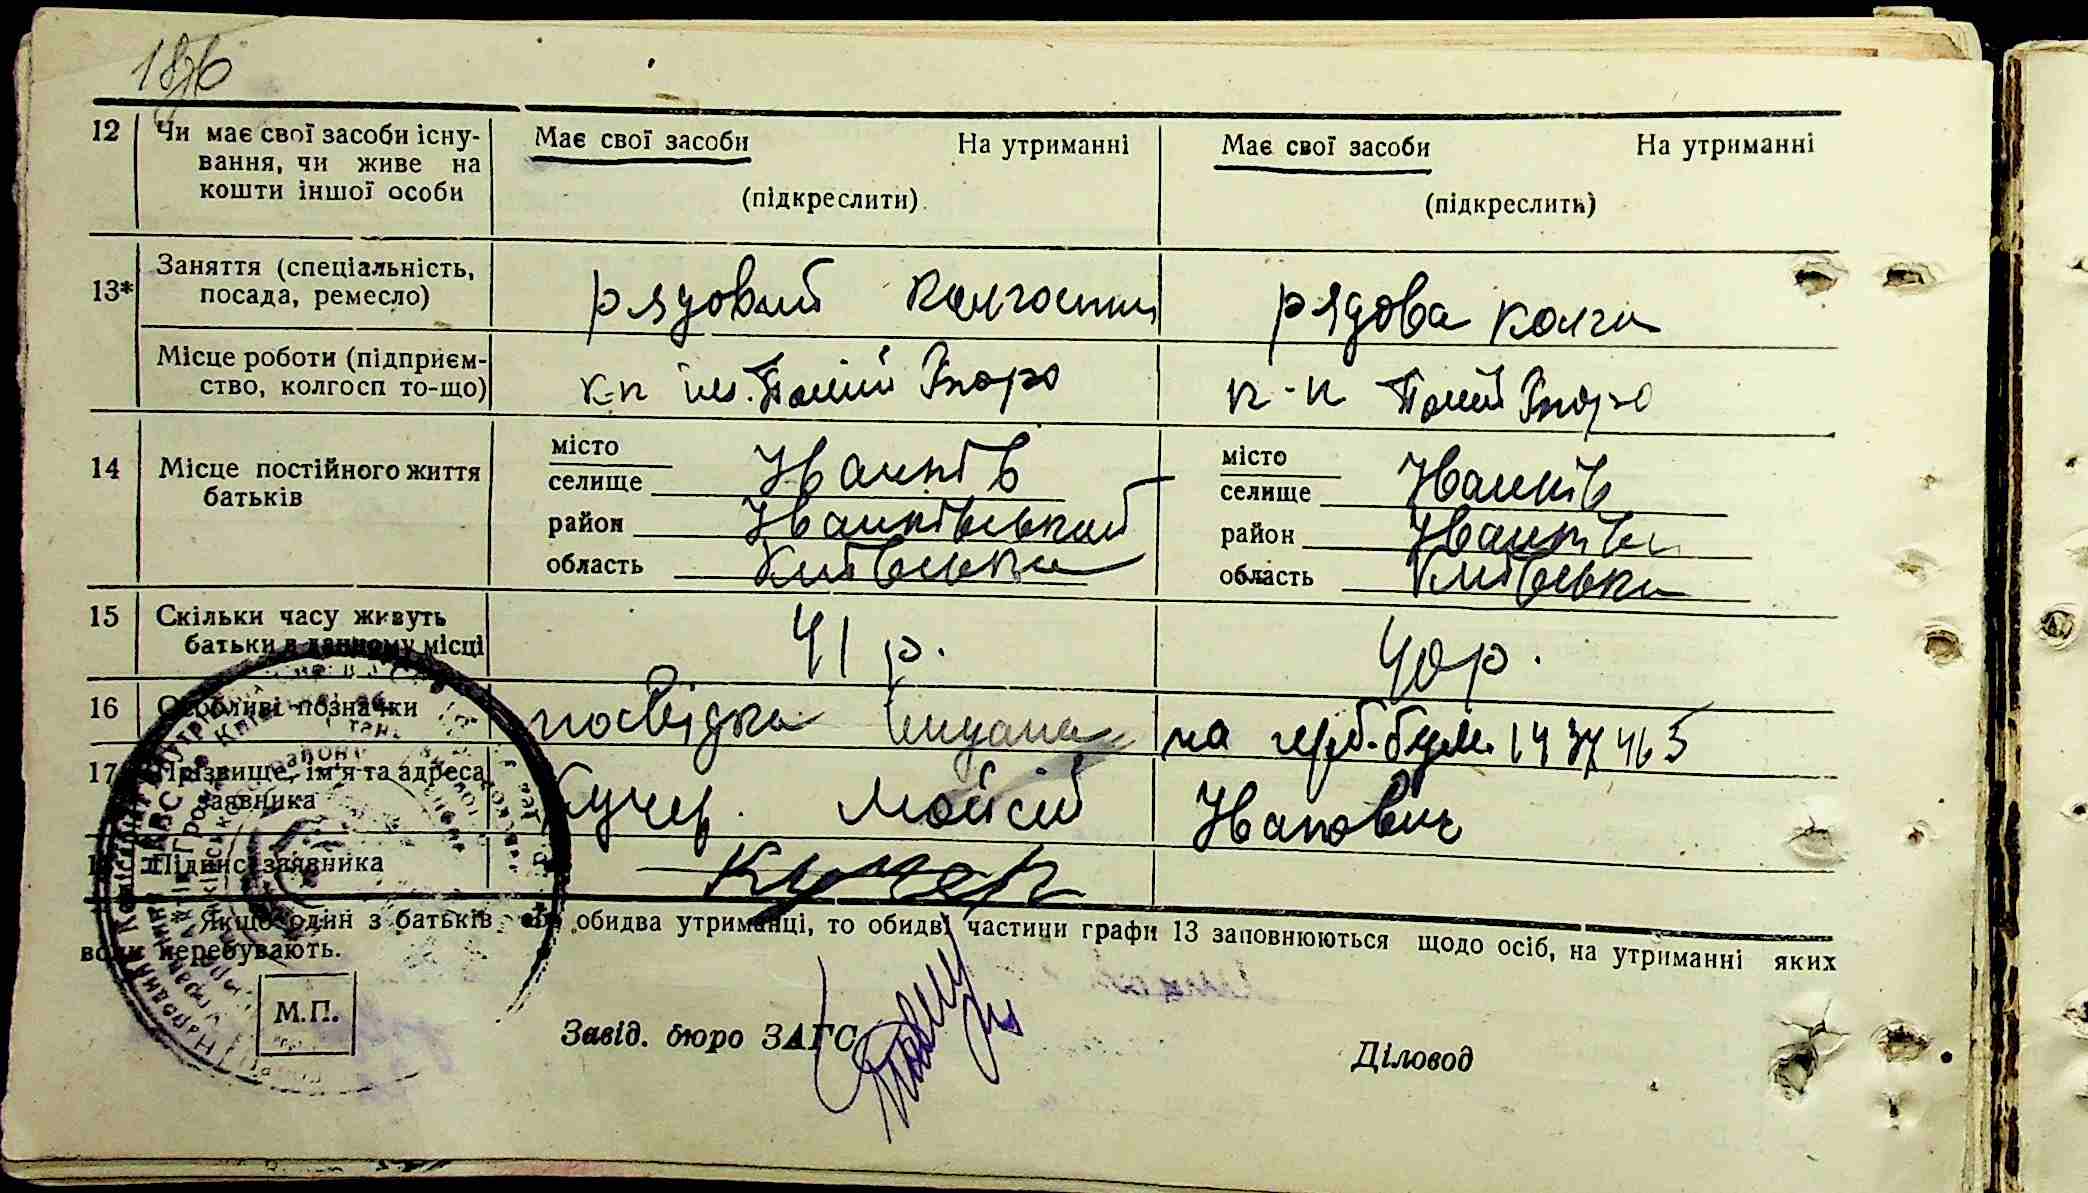 12 Чи має свої засоби існу- Має свої засоби На утриманні Має свої засоби На утриманні
вання, чи живе на
кошти іншої особи (підкреслити) (підкреслити)
Заняття (спеціальність,
13* посада, ремесло) рядовий колгоспн рядова колги
Місце роботи (підприєм-
ство, колгосп то-що) к-п ім. Політ Бюро к-п Політ Бюро
місто місто
14 Місце постійного життя селище Іванків селище Іванків
батьків район Іванківський район Іванків
область Київська область Київська
15 Скільки часу живуть 41 р. 40 р.
батьки в данному місці
16 Особливі позначки посвідка видана на герб. бум. 1437465
17 Прізвище, ім'я та адреса Кучер Мойсей Іванович
заявника
18 Підпис заявника Кучер
Якщо один з батьків, або обидва утриманці, то обидві частини графи 13 заповнюються щодо осіб, на утриманні яких
вони перебувають.
М.П.
Завід. бюро ЗАГС Діловод